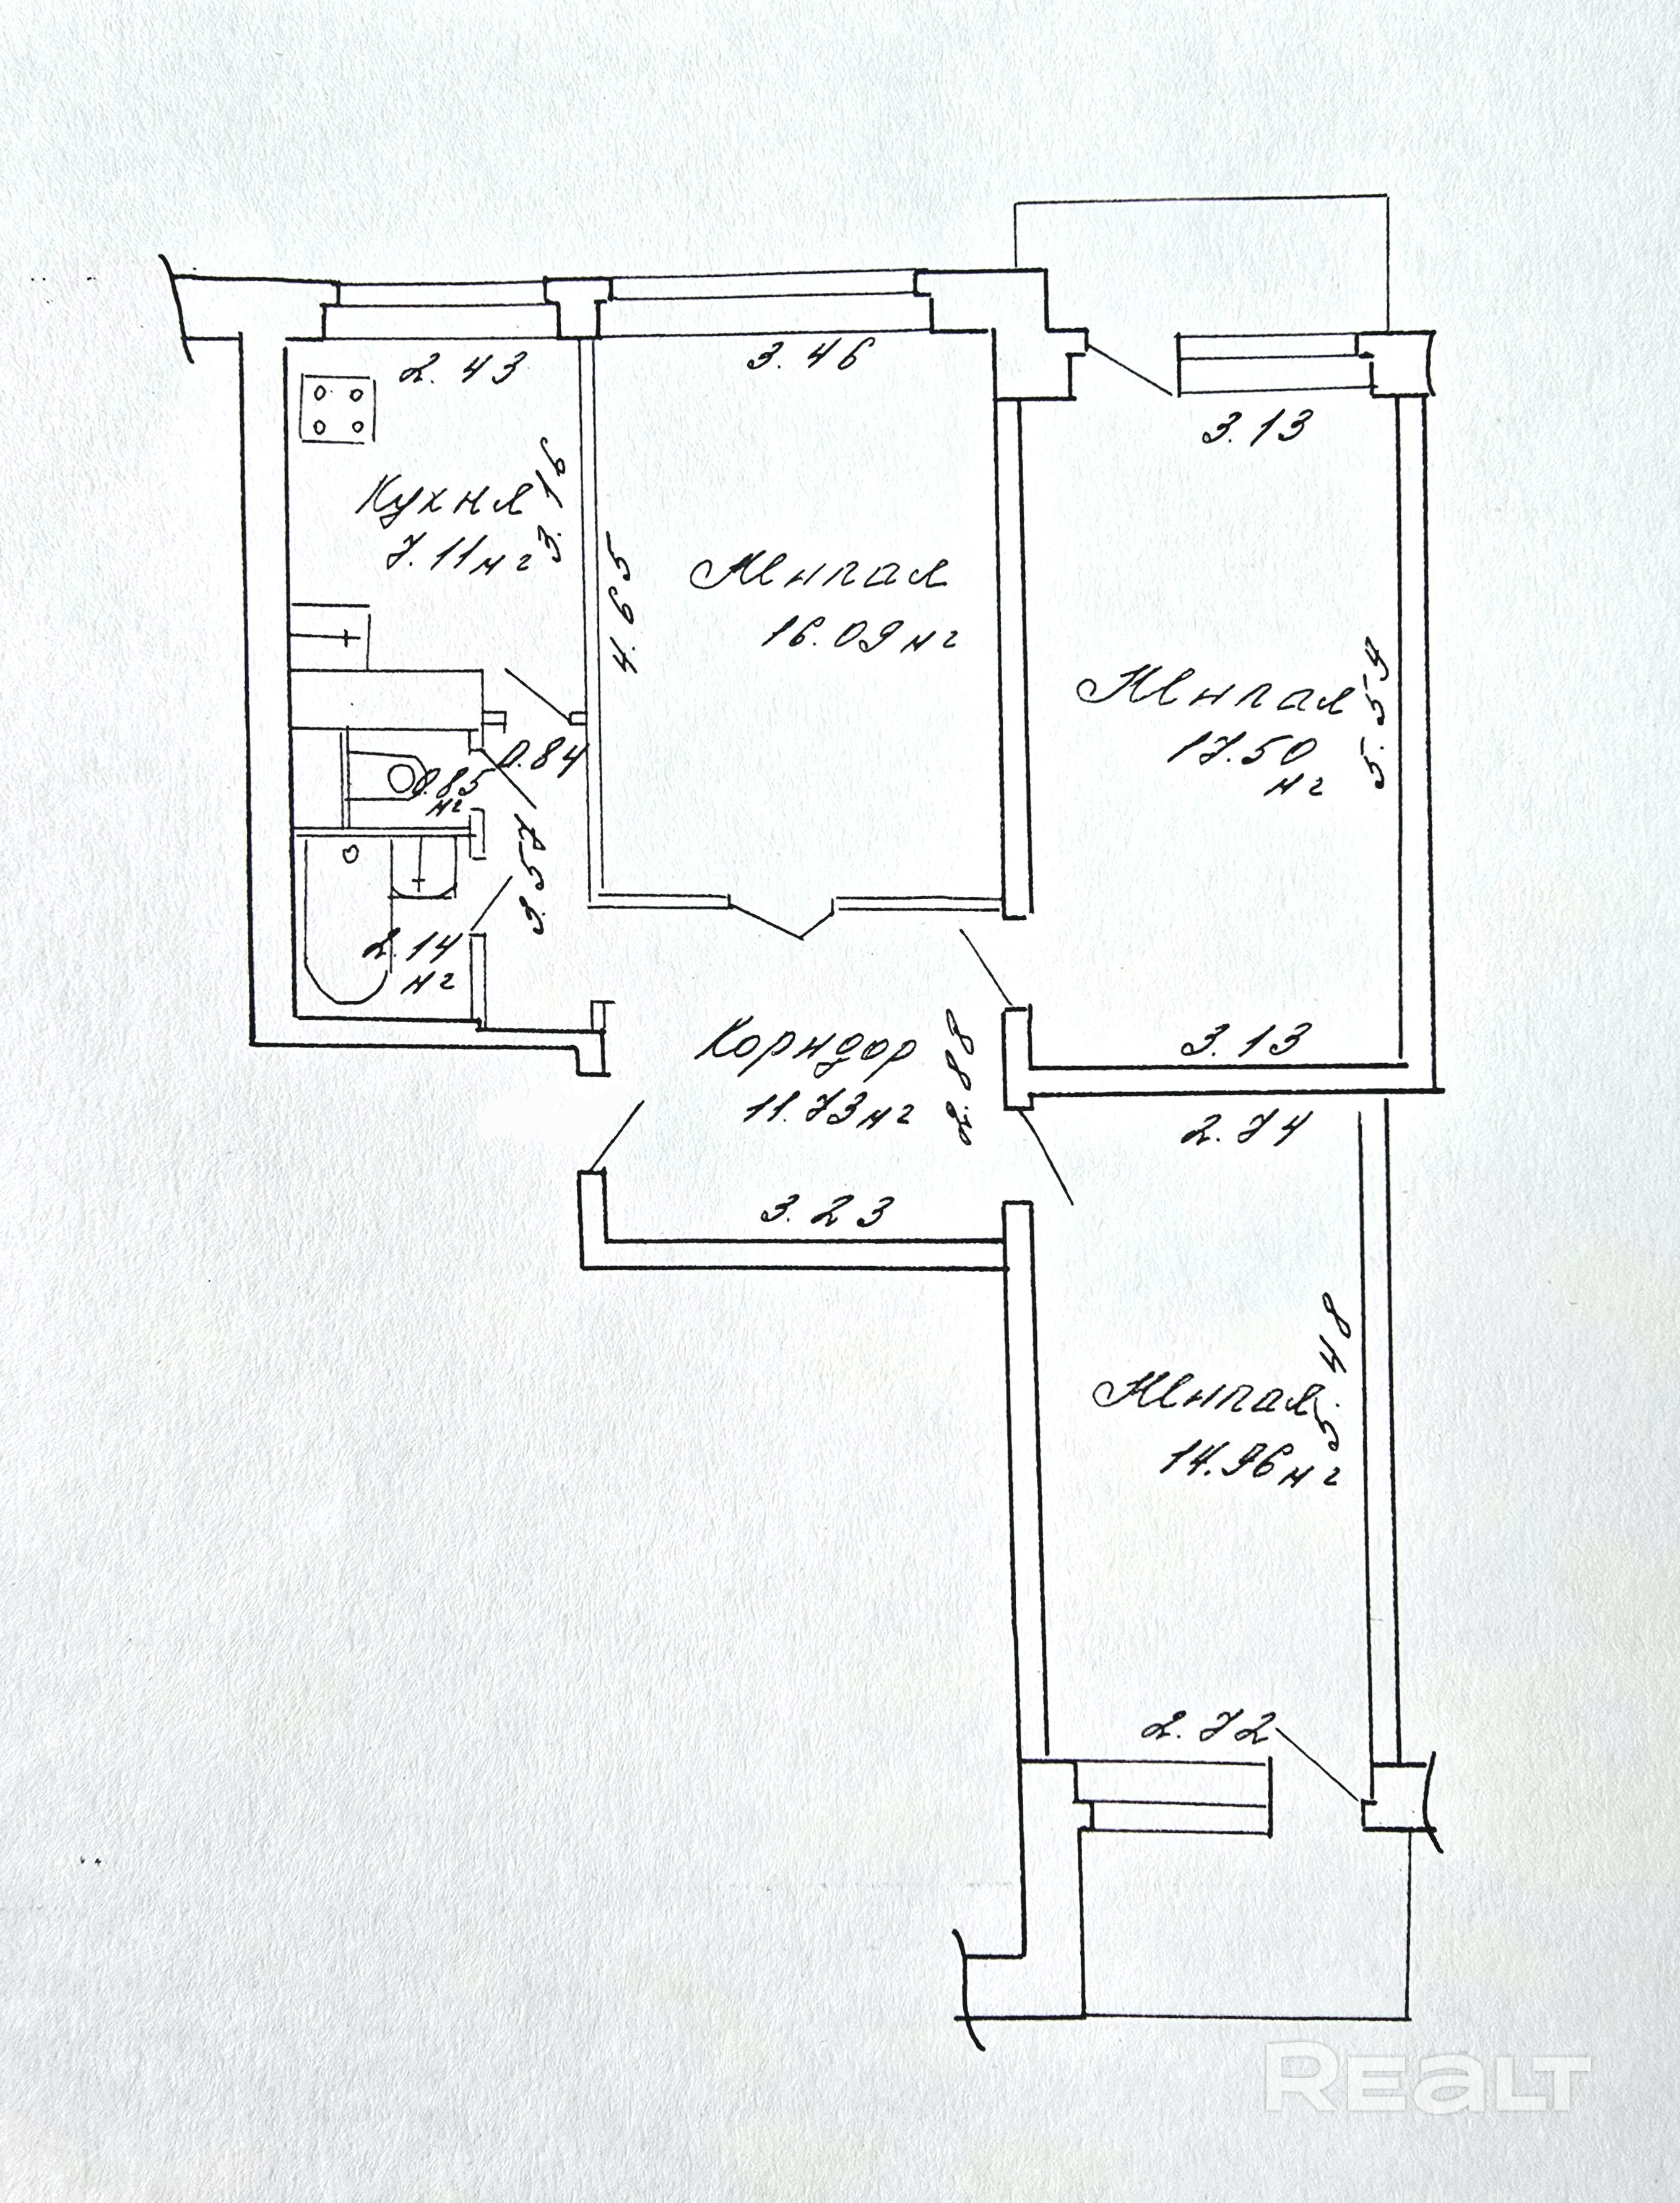 2.43
3.46
3.13
Кухня
7.11 м2
3.16
4.65
Жилая
16.09 м2
Жилая
17.50
м2
5.54
0.84
0.85
м2
2.14
м2
Коридор
11.73 м2
2.88
3.13
2.74
3.23
Жилая
14.96 м2
5.48
2.72
REALT